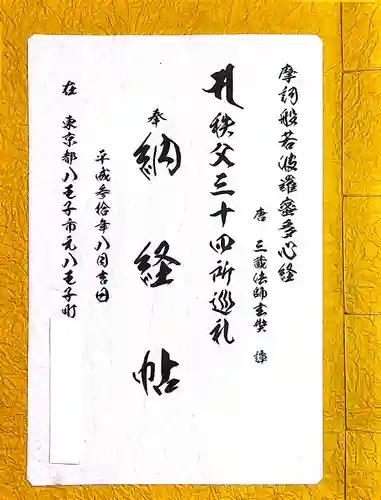 摩訶般若波羅蜜多心経
唐 三蔵法師玄奘 譯
秩父三十四所巡礼
奉
納経帖
平成参拾年八月吉日
在 東京都八王子市元八王子町